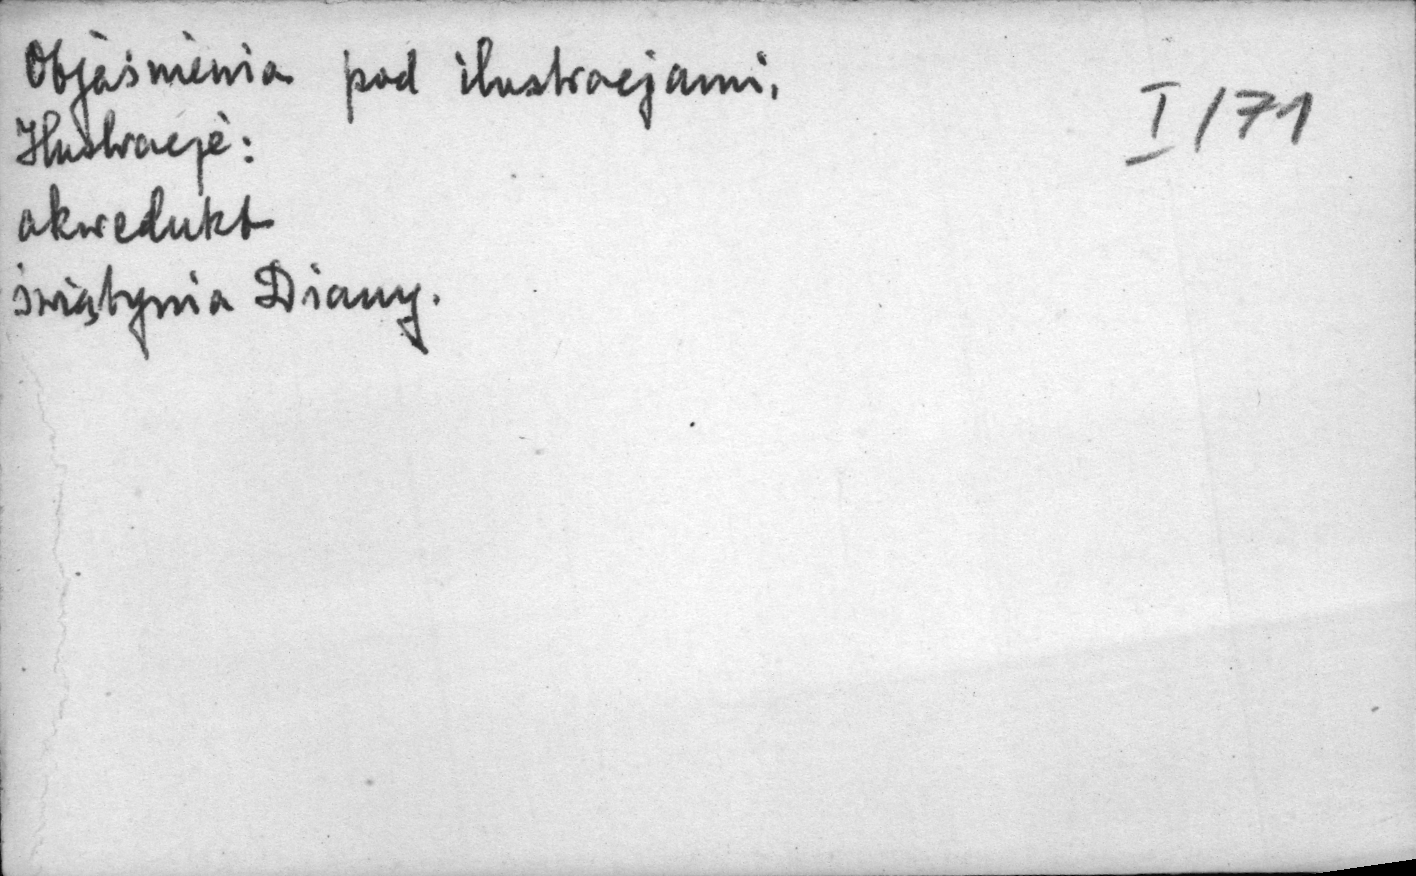 Objaśnienia pod ilustracjami.
I/71
Ilustracje:
akwedukt
świątynia Diany.